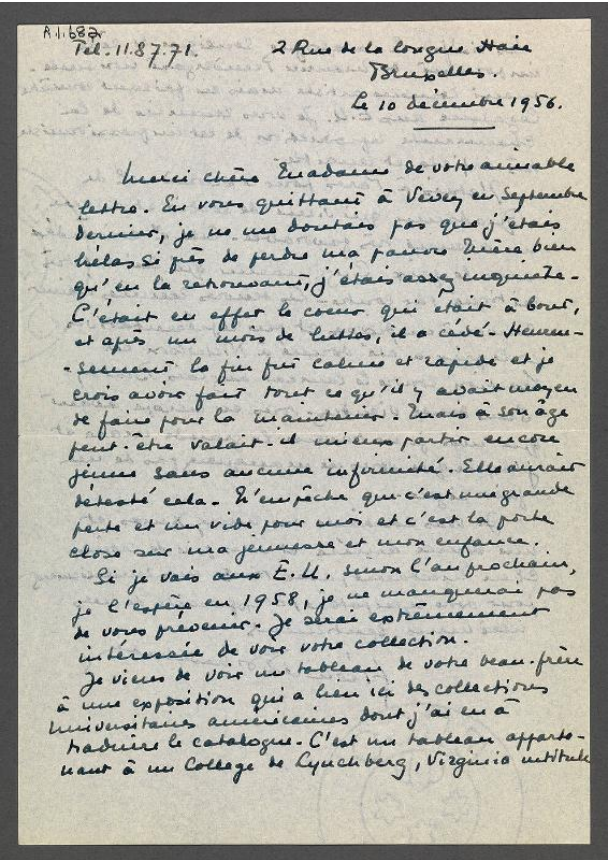 A.1.682
Tel. 11.87.71.
2 Rue de la longue Haie
Bruxelles.
Le 10 décembre 1956.
Merci chère Madame de votre aimable
lettre. En vous quittant à Vevey en Septembre
dernier, je ne me doutais pas que j'étais
hélas si près de perdre ma pauvre Mère bien
qu'en la retrouvant, j'étais assez inquiète.
C'était en effet le coeur qui était à bout,
et après un mois de luttes, il a cédé. Heureu-
-sement la fin fut calme et rapide et je
crois avoir fait tout ce qu'il y avait moyen
de faire pour la maintenir. Mais à son âge
peut-être valait-il mieux partir encore
jeune sans aucune infirmité. Elle aurait
détesté cela. N'empêche que c'est une grande
perte et un vide pour moi et c'est la porte
close sur ma jeunesse et mon enfance.
Si je vais aux E.U. sinon l'an prochain,
je l'espère en 1958, je ne manquerai pas
de vous prévenir. Je serai extrêmement
intéressée de voir votre collection.
Je viens de voir un tableau de votre beau-frère
à une exposition qui a lieu ici des collections
universitaires américaines dont j'ai eu à
traduire le catalogue. C'est un tableau apparte-
nant à un College de Lynchberg, Virginia intitulé